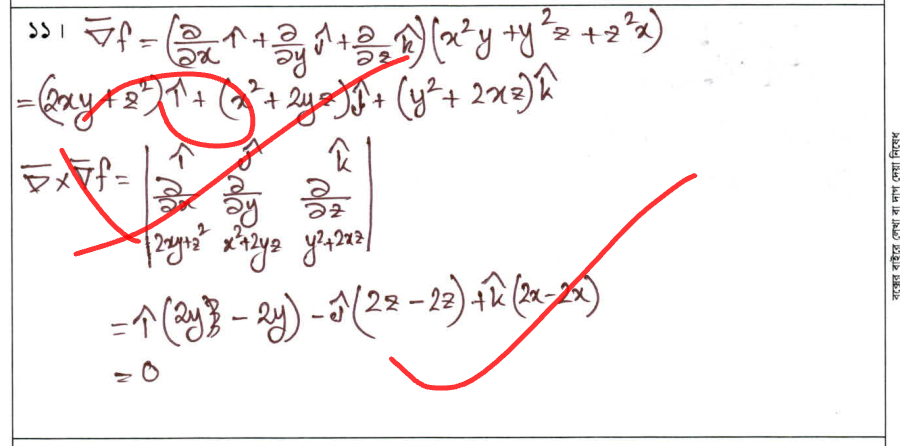 ১১। ∇̄f = (∂/∂x î + ∂/∂y ĵ + ∂/∂z k̂)(x²y + y²z + z²x)
= (2xy + z²) î + (x² + 2yz) ĵ + (y² + 2xz) k̂
∇̄ × ∇̄f = | î ĵ k̂ |
| ∂/∂x ∂/∂y ∂/∂z |
| 2xy+z² x²+2yz y²+2xz |
= î (2y - 2y) - ĵ (2z - 2z) + k̂ (2x - 2x)
= 0
বক্সের বাইরে লেখা বা দাগ দেয়া নিষেধ